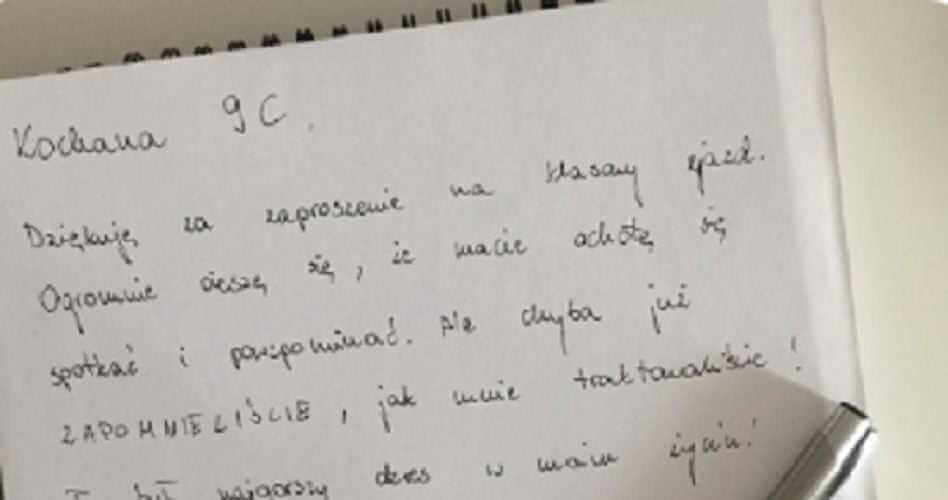 Kochana 9C.
Dziękuję za zaproszenie na klasowy zjazd.
Ogromnie cieszę się, że macie ochotę się
spotkać i powspominać. Ale chyba już
ZAPOMNIELIŚCIE, jak mnie traktowaliście!
To był najgorszy okres w moim życiu!